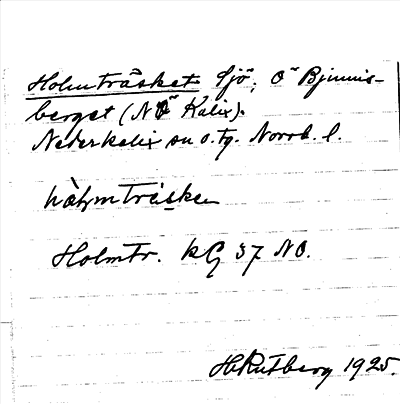 Holmträsket sjö; O̎ Bjinnis-
berget (NÖ Kalix).
Nederkalix sn o. tg. Norrb. l.
hòlmträske
Holmtr. kG 37 NO.
H Rutberg 1925.